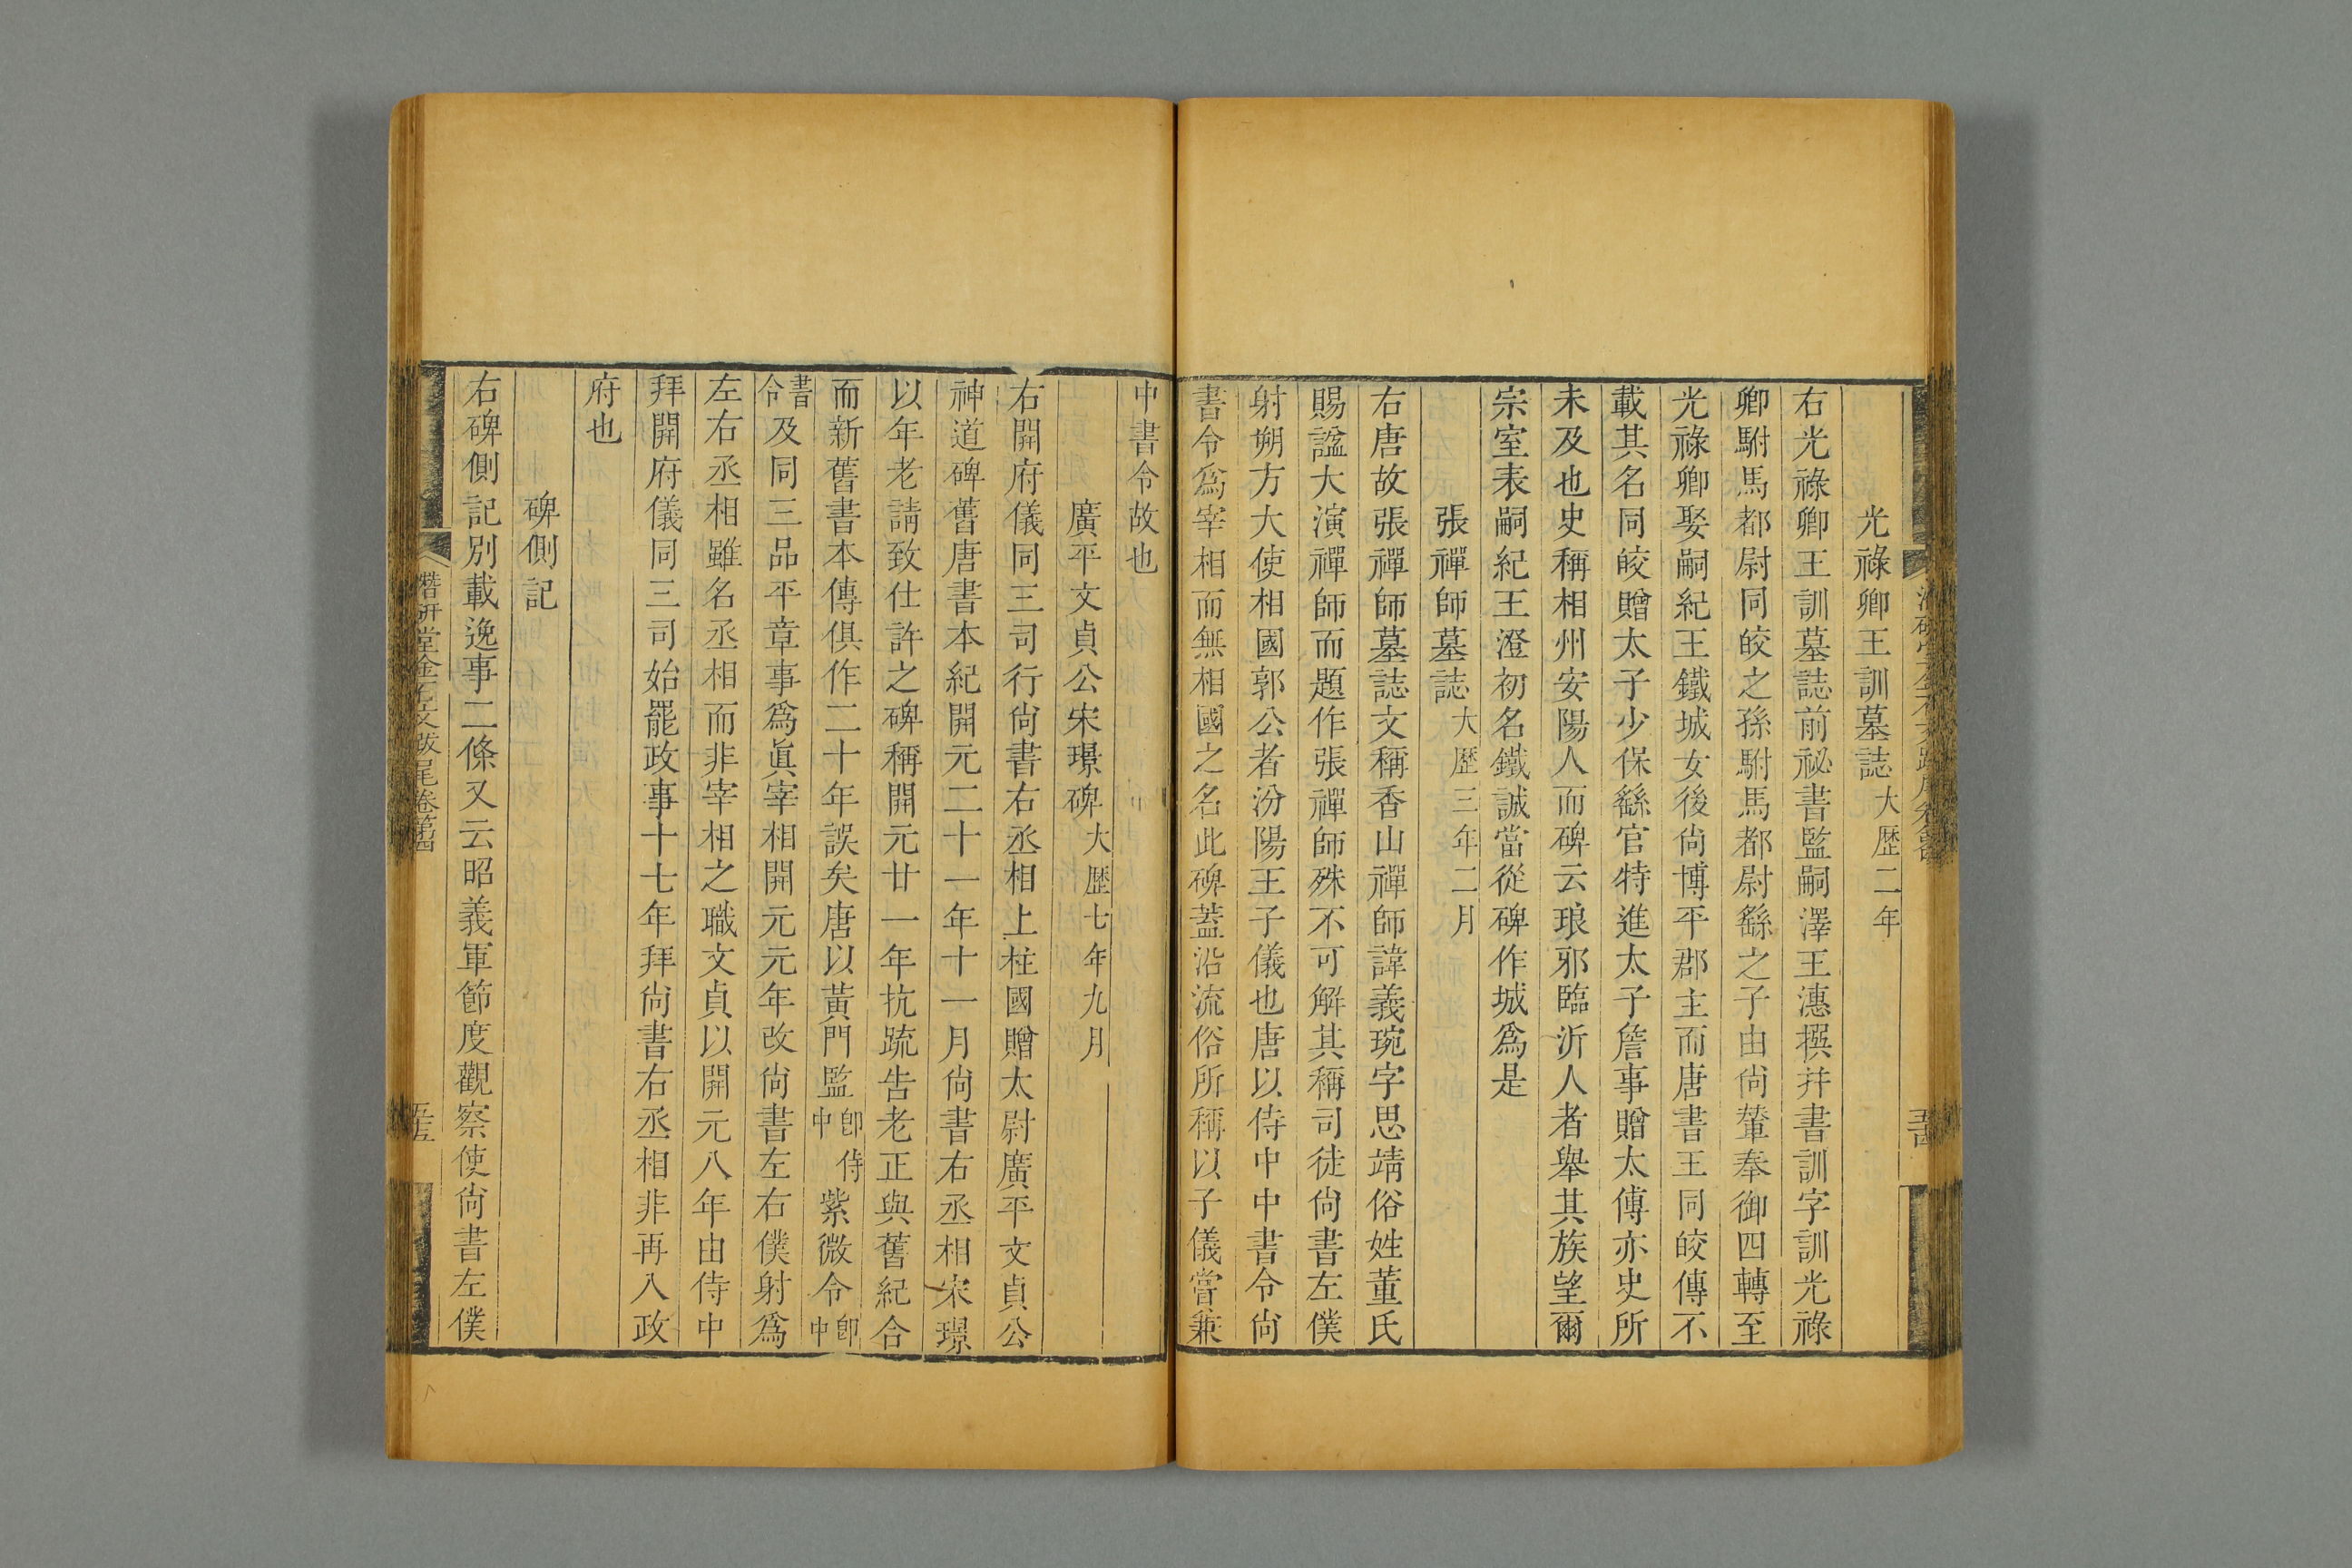 光祿卿王訓墓誌大歴二年
右光祿卿王訓墓誌前祕書監嗣澤王潓撰幷書訓字訓光祿
卿駙馬都尉同皎之孫駙馬都尉繇之子由尙輦奉御四轉至
光祿卿娶嗣紀王鐵城女後尙博平郡主而唐書王同皎傳不
載其名同皎贈太子少保繇官特進太子詹事贈太傅亦史所
未及也史稱相州安陽人而碑云琅邪臨沂人者舉其族望爾
宗室表嗣紀王澄初名鐵誠當從碑作城爲是
張禪師墓誌大歴三年二月
右唐故張禪師墓誌文稱香山禪師諱義琬字思靖俗姓董氏
賜諡大演禪師而題作張禪師殊不可解其稱司徒尙書左僕
射朔方大使相國郭公者汾陽王子儀也唐以侍中中書令尙
書令爲宰相而無相國之名此碑蓋沿流俗所稱以子儀嘗兼
中書令故也
廣平文貞公宋璟碑大歴七年九月
右開府儀同三司行尙書右丞相上柱國贈太尉廣平文貞公
神道碑舊唐書本紀開元二十一年十一月尙書右丞相宋璟
以年老請致仕許之碑稱開元廿一年抗疏告老正與舊紀合
而新舊書本傳俱作二十年誤矣唐以黃門監卽侍中紫微令卽中
書令及同三品平章事爲眞宰相開元元年改尙書左右僕射爲
左右丞相雖名丞相而非宰相之職文貞以開元八年由侍中
拜開府儀同三司始罷政事十七年拜尙書右丞相非再入政
府也
碑側記
右碑側記別載逸事二條又云昭義軍節度觀察使尙書左僕
潛研堂金石文跋尾卷第四
五五